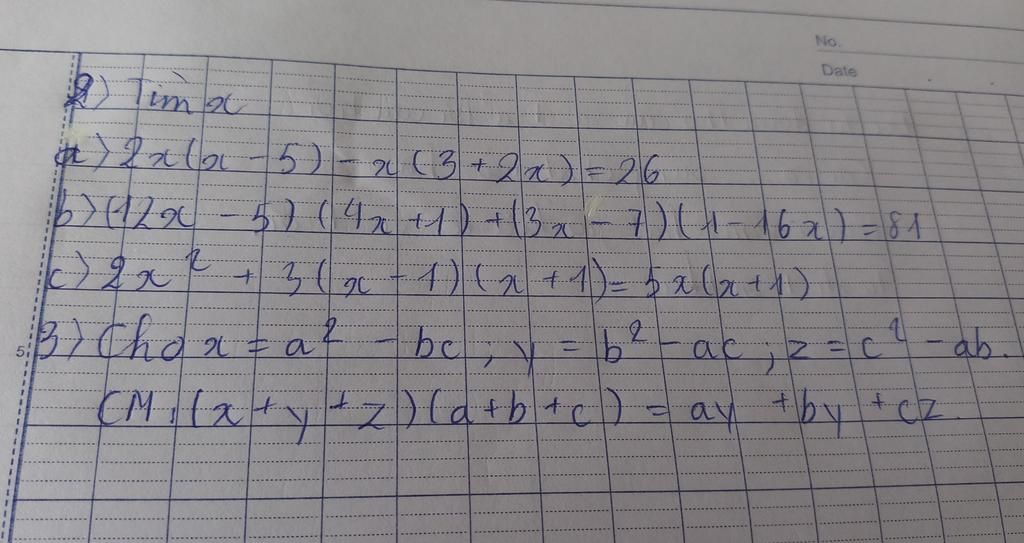 No.
Date
2) Tìm x
a) 2x(x - 5) - x(3 + 2x) = 26
b) (12x - 5)(4x + 1) + (3x - 7)(1 - 16x) = 81
c) 2x² + 3(x - 1)(x + 1) = 5x(x + 1)
5
3) Cho x = a² - bc ; y = b² - ac ; z = c² - ab.
CM : (x + y + z)(a + b + c) = ay + by + cz